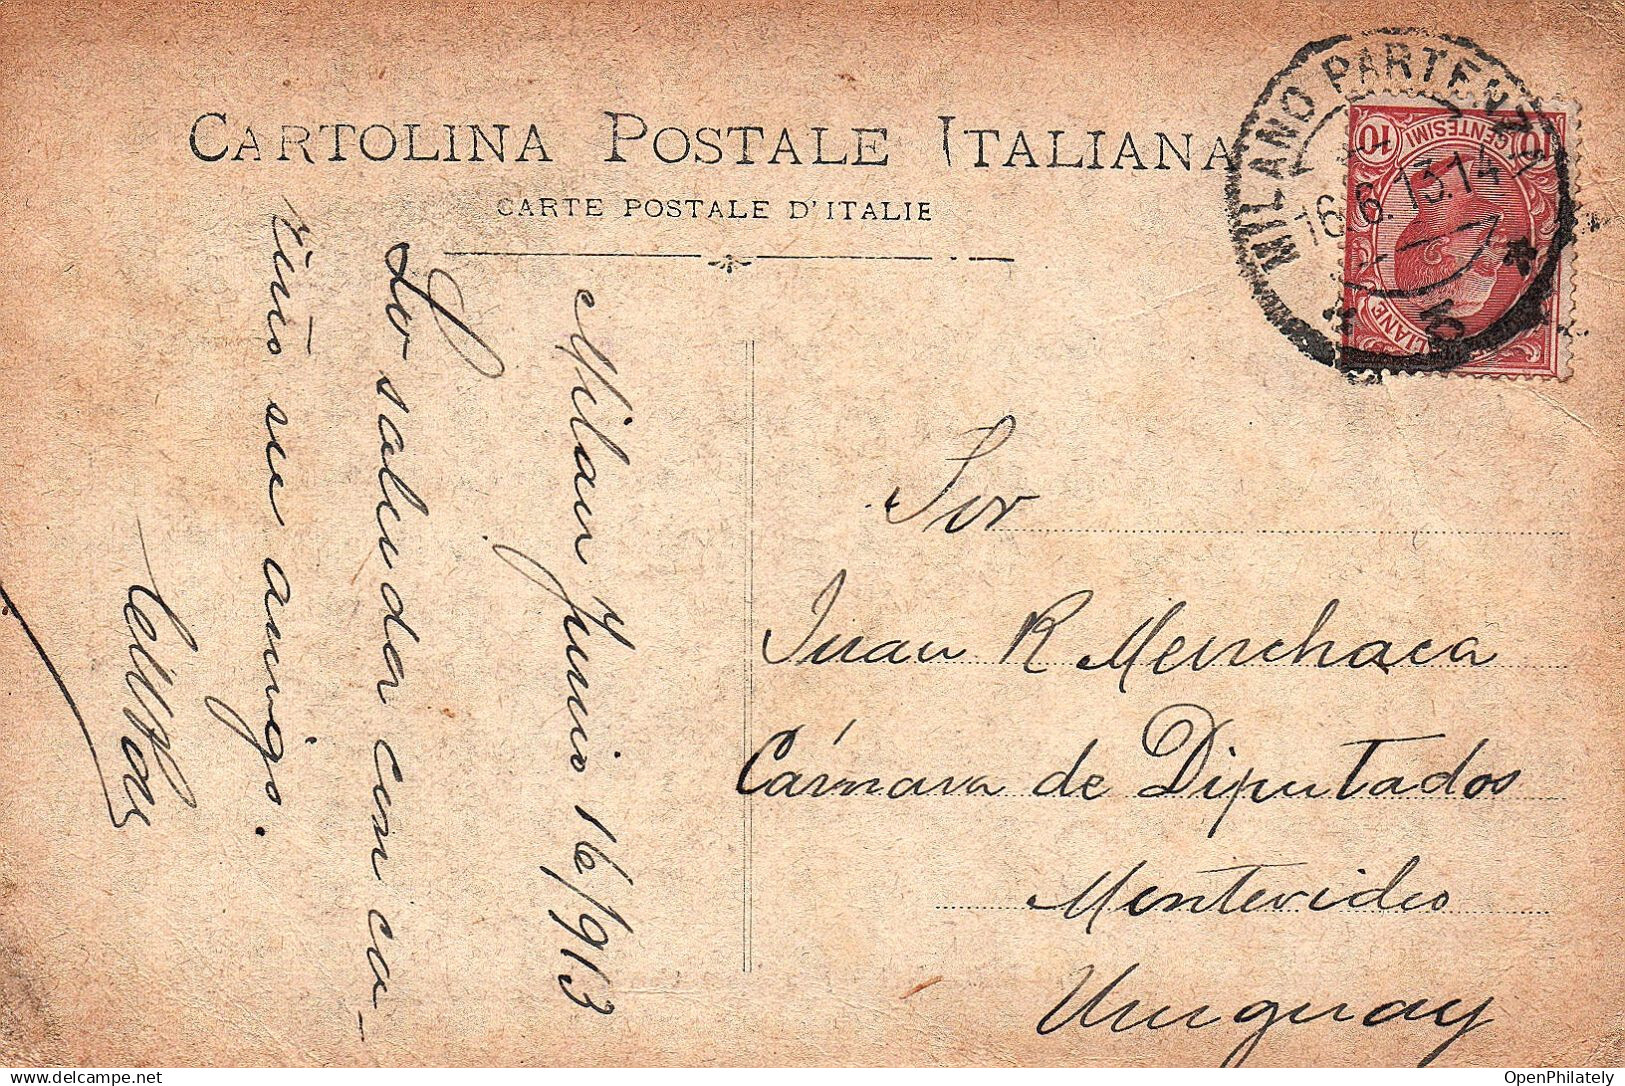 CARTOLINA POSTALE ITALIANA
CARTE POSTALE D'ITALIE
MILANO PARTENZA
16.6.13.14
10 CENTESIMI 10
Milan Junio 16/913
Lo saluda con ca-
riño su amigo.
Sor
Juan R Menchaca
Cámara de Diputados
Montevideo
Uruguay
delcampe.net
OpenPhilately